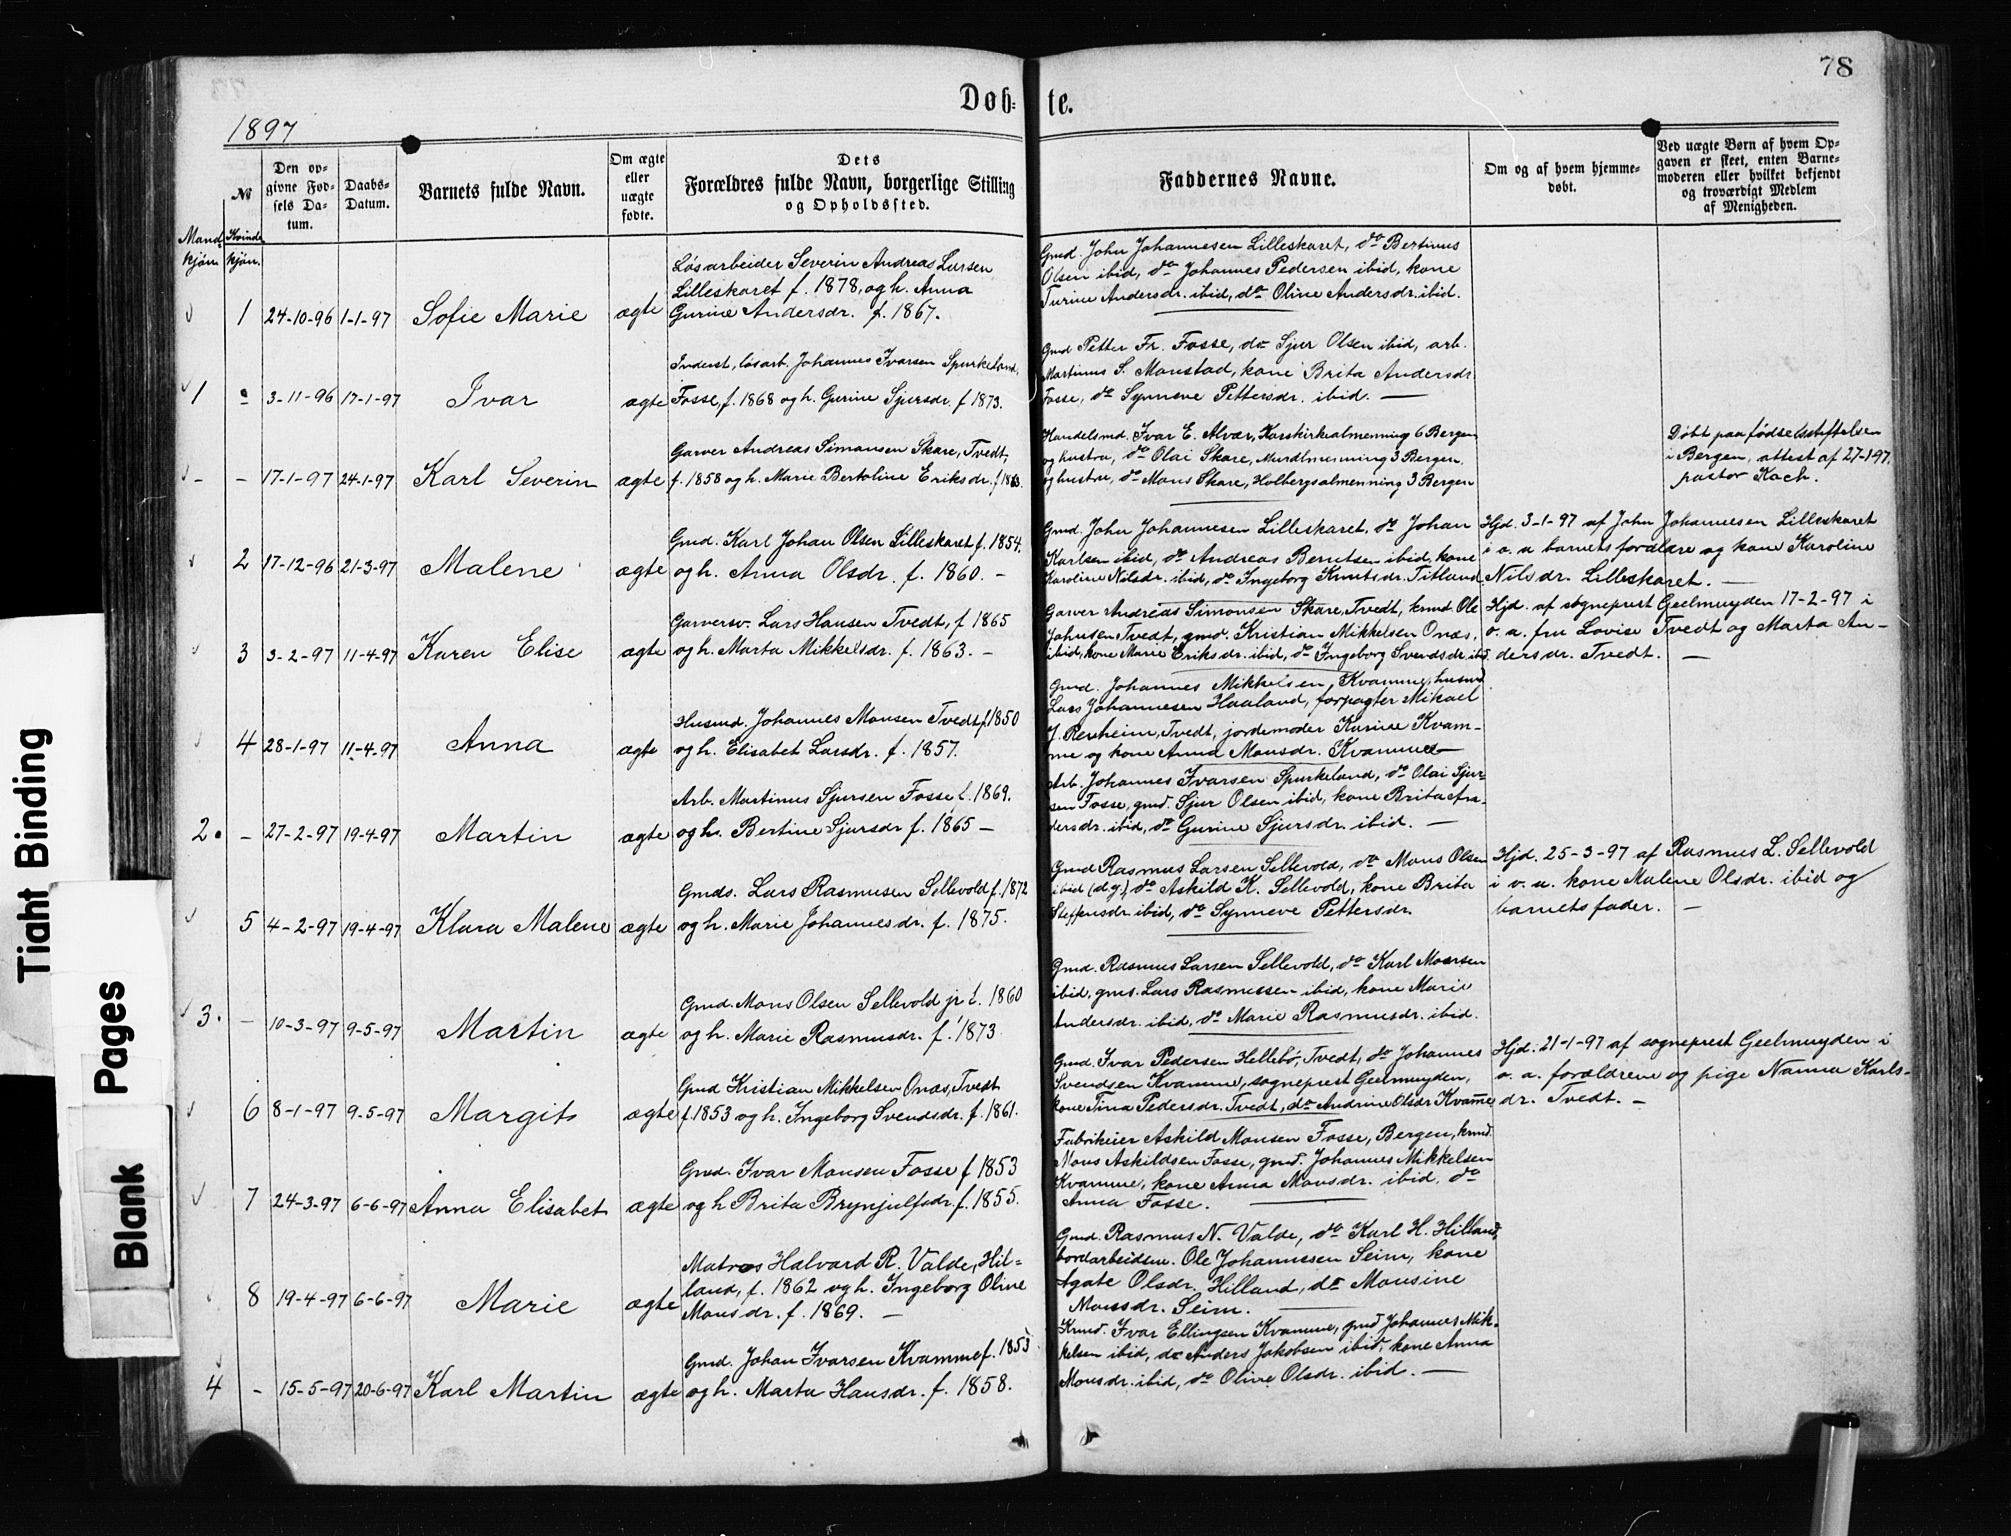 78
Døb-
te.
1897
№
Den op-
givne Fød-
sels Da-
tum.
Daabs-
Datum.
Barnets fulde Navn.
Om ægte
eller
uægte
fødte.
Dets
Forældres fulde Navn, borgerlige Stilling
og Opholdssted.
Faddernes Navne.
Om og af hvem hjemme-
døbt.
Ved uægte Børn af hvem Op-
gaven er skeet, enten Barne-
moderen eller hvilket bekjendt
og troværdigt Medlem
af Menigheden.
Mand-
kjøn.
Kvinde
kjøn.
1 24-10-96 1-1-97 Sofie Marie ægte
Løsarbeider Severin Andreas Larsen
Lilleskaret f. 1878, og h. Anna
Gurine Andersdr. f. 1867.
Gmd. John Johannesen Lilleskaret, do Bertinus
Olsen ibid, do Johannes Pedersen ibid, kone
Turine Andersdr. ibid, do Oline Andersdr. ibid.
1 - 3-11-96 17-1-97 Ivar ægte
Inderst, løsarb. Johannes Ivarsen Spurkeland,
Fosse, f. 1868 og h. Gurine Sjursdr. f 1873.
Gmd Petter Fr. Fosse, do Sjur Olsen ibid, arb.
Martinus S. Monstad, kone Brita Andersdr
Fosse, do Synneve Pettersdr. ibid. —
- - 17-1-97 24-1-97 Karl Severin ægte
Garver Andreas Simonsen Skare, Tvedt,
f. 1858 og h. Marie Bertoline Eriksdr. f 1863.
Handelsmd. Ivar E. Alvær, Korskirkealmenning 6 Bergen
og hustru, do Olai Skare, Muralmenning 3 Bergen.
og hustru, do Mons Skare, Holbergsalmenning 3 Bergen
Døbt paa fødselsstiftelsen
i Bergen, attest af 27-1-97.
pastor Koch.
2 17-12-96 21-3-97 Malene ægte
Gmd. Karl Johan Olsen Lilleskaret f. 1854.
og h. Anna Olsdr. f. 1860. -
Gmd. John Johannesen Lilleskaret. do Johan
Karlsen ibid, do Andreas Berntsen ibid, kone
Karoline Nilsdr. ibid, do Ingeborg Knutsdr. Titland.
Hjd. 3-1-97 af John Johannesen Lilleskaret
i o. a barnets forældre og kone Karoline
Nilsdr. Lilleskaret. —
3 3-2-97 11-4-97 Karen Elise ægte
Garversv. Lars Hansen Tvedt, f 1865
og h. Marta Mikkelsdr. f. 1863. -
Garver Andreas Simonsen Skare, Tvedt, kmd. Ole
Johnsen Tvedt, gmd. Kristian Mikkelsen Onæs,
ibid, kone Marie Eriksdr. ibid, do Ingeborg Svendsdr. ibid.
Hjd. af sogneprest Geelmuyden 17-2-97 i
o. a. fru Lovise Tvedt og Marta An-
dersdr. Tvedt. —
4 28-1-97 11-4-97 Anna ægte
Husmd. Johannes Monsen Tvedt f. 1850
og h. Elisabet Larsdr. f. 1857.
Gmd. Johannes Mikkelsen, Kvamme, husmd
Lars Johannesen Haaland, forpagter Mikael
J. Renheim, Tvedt, jordemoder Karine Kvam-
me og kone Anna Monsdr. Kvamme —
2. - 27-2-97 19-4-97 Martin ægte
Arb. Martinus Sjursen Fosse f. 1869.
og h. Bertine Sjursdr f. 1865 -
Arb. Johannes Ivarsen Spurkeland, do Olai Sjur-
sen Fosse, gmd. Sjur Olsen ibid, kone Brita An-
dersdr. ibid, do Gurine Sjursdr. ibid. —
5 4-2-97 19-4-97 Klara Malene ægte
Gmds. Lars Rasmusen Sellevold f. 1872
og h. Marie Johannesdr. f. 1875.
Gmd Rasmus Larsen Sellevold, do Mons Olsen
ibid (d.y.), do Askild K. Sellevold, kone Brita
Steffensdr. ibid, do Synneve Pettersdr.
Hjd. 25-3-97 af Rasmus L. Sellevold
i o. a. kone Malene Olsdr. ibid og
barnets fader. —
3. - 10-3-97 9-5-97 Martin ægte
Gmd. Mons Olsen Sellevold jr f. 1860
og h. Marie Rasmusdr. f. 1873
Gmd. Rasmus Larsen Sellevold, do Karl Monsen
ibid, gms. Lars Rasmussen ibid, kone Marie
Andersdr. ibid, do Marie Rasmusdr. ibid.
6 8-1-97 9-5-97 Margit ægte
Gmd Kristian Mikkelsen Onæs, Tvedt
f. 1853 og h. Ingeborg Svendsdr. f. 1861.
Gmd. Ivar Pedersen Hellebø, Tvedt, do Johannes
Svendsen Kvamme, sogneprest Geelmuyden,
kone Tina Pedersdr. Tvedt, do Andrine Olsdr Kvamme
Hjd. 21-1-97 af sogneprest Geelmuyden i
o. a. forældrene og pige Nanna Karls-
dr. Tvedt. -
7 24-3-97 6-6-97 Anna Elisabet ægte
Gmd. Ivar Monsen Fosse f 1853
og h Brita Brynjulfsdr. f. 1855.
Fabrikeier Askild Monsen Fosse, Bergen, kmd.
Mons Askildsen Fosse, gmd. Johannes Mikkelsen
Kvamme, kone Anna Monsdr. ibid, do
Anna Fosse.
8 19-4-97 6-6-97 Marie ægte
Matros Halvard R. Valde, Hil-
land, f. 1862 og h. Ingeborg Oline
Monsdr. f. 1869. —
Gmd. Rasmus N. Valde, do Karl H. Hilland,
bordarbeidsm. Ole Johannesen Seim, kone
Agate Olsdr. Hilland, do Monsine
Monsdr. Seim.
4 - 15-5-97 20-6-97 Karl Martin ægte
Gmd. Johan Ivarsen Kvamme f. 1853
og h. Marta Hansdr. f. 1858.
Kmd. Ivar Ellingsen Kvamme, gmd Johannes Mik-
kelsen ibid, do Anders Jakobsen ibid, kone Anna
Monsdr. ibid, do Olive Olsdr. ibid. —
Tight Binding
Blank Pages